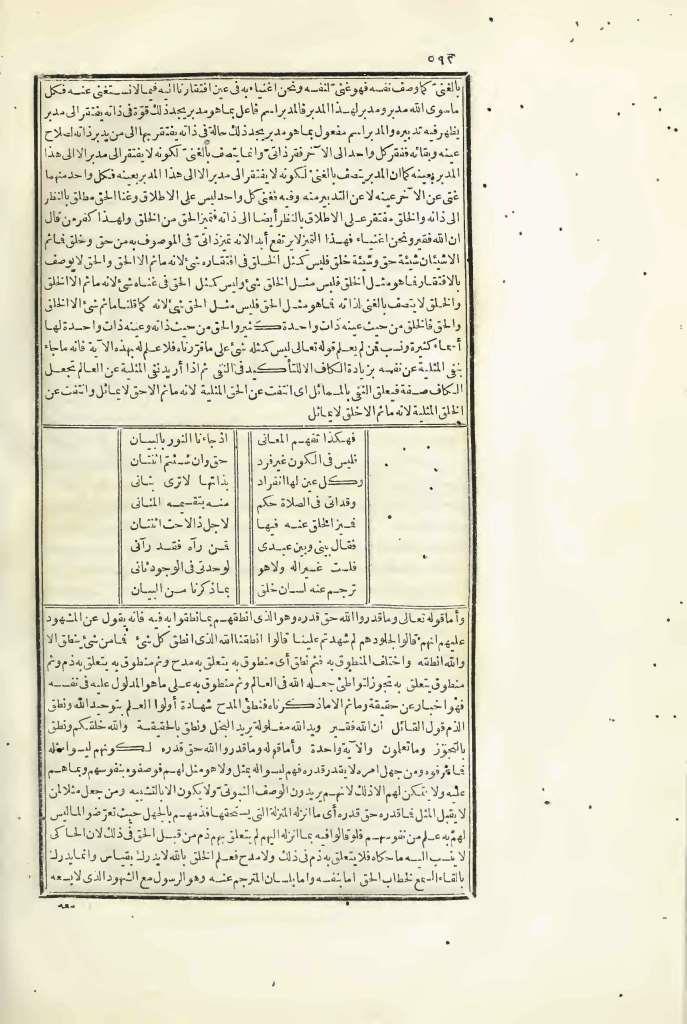 ٥٩٣
بالغنى كما وصف نفسه فهو غنى لنفسه ونحن أغنياء به فى عين افتقارنا اليه فيما لا نستغنى عنه فكل
ما سوى الله مدبر ومدبر لهذا المدبر فالمدبر اسم فاعل بما هو مدبر يجد ذلك قوة فى ذاته يفتقر الى مدبر
يظهر فيه تدبيره والمدبر اسم مفعول بما هو مدبر يجد ذلك حالة فى ذاته يفتقر بها الى من يدبر ذاته لصلاح
عينه وبقائه ففقر كل واحد الى الآخر فقر ذاتى وانما يتصف بالغنى لكونه لا يفتقر الى مدبر الا الى هذا
المدبر بعينه كما ان المدبر يتصف بالغنى لكونه لا يفتقر الى مدبر الا الى هذا المدبر بعينه فكل واحد منهما
غنى عن الآخر عينه لا عن التدبير منه وفيه فغنى كل واحد ليس على الاطلاق وغنا الحق مطلق بالنظر
الى ذاته والخلق مفتقر على الاطلاق بالنظر أيضا الى ذاته فتميز الحق من الخلق ولهذا كفر من قال
ان الله فقير ونحن أغنياء فهذا التميز لا يرتفع أبدا لانه تميز ذاتى فى الموصوف به من حق وخلق فما ثم
الا شيئان شيئية حق وشيئية خلق فليس كمثل الخلق فى افتقاره شئ لانه ما ثم الا الحق والحق لا يوصف
بالافتقار فما هو مثل الخلق فليس مثل الخلق شئ وليس كمثل الحق فى غناه شئ لانه ما ثم الا الخلق
والخلق لا يتصف بالغنى لذاته فما هو مثل الحق فليس مثل الحق شئ لانه كما قلنا ما ثم شئ الا الخلق
والحق فالخلق من حيث عينه ذات واحدة كثيرة والحق من حيث ذاته وعينه ذات واحدة لها
أسماء كثيرة ونسب فمن لم يعلم قوله تعالى ليس كمثله شئ على ما قررناه فلا علم له بهذه الآية فانه ما جاء
بنفى المثلية عن نفسه بزيادة الكاف الا للتأكيد فى النفى ثم اذا أريد نفى المثلية عن العالم تجعل
الكاف صفة فيعلق النفى بالمماثل اى انتفت عن الحق المثلية لانه ما ثم الا حق لا يماثل وانتفت عن
الخلق المثلية لانه ما ثم الا خلق لا يماثل
فهكذا تفهم المعانى اذ جاءنا النور بالبيان
فليس فى الكون غير فرد حق وان شئتم اثنتان
وكل عين لها انفراد بذاتها لا ترى بثانى
وقد أتى فى الصلاة حكم منه بتقسيمه المثانى
فميز الخلق عنه فيها لاجل ذا لاحت اثنتان
فقال بينى وبين عبدى فمن رآه فقد رآنى
فلست غير اله ولا هو لوحدتى فى الوجود ثانى
ترجم عنه لسان خلق بما ذكرنا من البيان
وأما قوله تعالى وما قدروا الله حق قدره وهو الذى انطقهم بما نطقوا به فيه فانه يقول عن المشهود
عليهم انهم قالوا لجلودهم لم شهدتم علينا قالوا انطقنا الله الذى انطق كل شئ فما من شئ ينطق الا
والله انطقه واختلف المنطوق به فثم نطق أى منطوق به يتعلق به مدح وثم منطوق به يتعلق به ذم وثم
منطوق يتعلق به تجوز لتواطئ جعله الله فى العالم وثم منطوق به على ما هو المدلول عليه فى نفسه
فهو اخبار عن حقيقة وما ثم الا ما ذكرناه فنطق المدح شهادة أولوا العلم بتوحيد الله ونطق
الذم قول القائل أن الله فقير ويد الله مغلولة يريد البخل ونطق بالحقيقة والله خلقكم ونطق
بالتجوز وما تعملون والآية واحدة وأما قوله وما قدروا الله حق قدره لكونهم ليسوا مثله
فما عرفوه ومن جهل امره لا يقدر قدره فهم ليسوا له بمثل ولا هو مثل لهم فوصفوه بنفوسهم وبما هم
عليه ولا يتمكن لهم الا ذلك لانهم يريدون الوصف الثبوتى ولا يكون الا بالتشبيه ومن جعل مثلا لمن
لا يقبل المثل فما قدره حق قدره أى ما انزله المنزلة التى يستحقها فذمهم بالجهل حيث تعرضوا لما ليس
لهم به علم من نفوسهم فلو قالوا فيه بما انزله اليهم لم يتعلق بهم ذم من قبل الحق فى ذلك لان الحاكى
لا ينسب اليه ما حكاه فلا يتعلق به ذم فى ذلك ولا مدح فعلم الخلق بالله لا يدرك بقياس وانما يدرك
بالقاء السمع لخطاب الحق اما بنفسه واما بلسان المترجم عنه وهو الرسول مع الشهود الذى لا يسعه